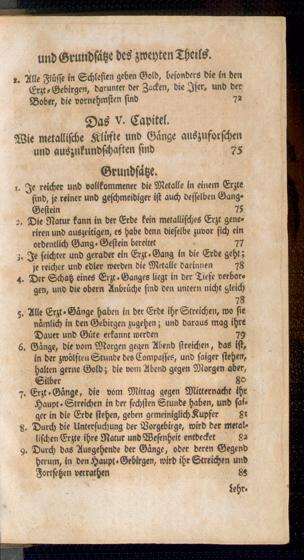 und Grundsätze des zweyten Theils.
2. Alle Flüsse in Schlesien geben Gold, besonders die in den
Erzt-Gebirgen, darunter der Zacken, die Iser, und der
Bober, die vornehmsten sind 72
Das V. Capitel.
Wie metallische Klüfte und Gänge auszuforschen
und auszukundschaften sind 75
Grundsätze.
1. Je reicher und vollkommener die Metalle in einem Erzte
sind, je reiner und geschmeidiger ist auch desselben Gang-
Gestein 75
2. Die Natur kann in der Erde kein metallisches Erzt gene-
riren und auszeitigen, es habe denn dieselbe zuvor sich ein
ordentlich Gang-Gestein bereitet 77
3. Je seichter und gerader ein Erzt-Gang in die Erde geht;
je reicher und edler werden die Metalle darinnen 78
4. Der Schatz eines Erzt-Ganges liegt in der Tiefe verbor-
gen, und die obern Anbrüche sind den untern nicht gleich
78
5. Alle Erzt-Gänge haben in der Erde ihr Streichen, wo sie
nämlich in den Gebirgen zugehen; und daraus mag ihre
Dauer und Güte erkannt werden 79
6. Gänge, die vom Morgen gegen Abend streichen, das ist,
in der zwölften Stunde des Compasses, und saiger stehen,
halten gerne Gold; die vom Abend gegen Morgen aber,
Silber 80
7. Erzt-Gänge, die vom Mittag gegen Mitternacht ihr
Haupt-Streichen in der sechsten Stunde haben, und sai-
ger in die Erde stehen, geben gemeiniglich Kupfer 81
8. Durch die Untersuchung der Vorgebirge, wird der metal-
lischen Erzte ihre Natur und Wesenheit entdecket 82
9. Durch das Ausgehende der Gänge, oder deren Gegend
herum, in den Haupt-Gebirgen, wird ihr Streichen und
Fortsetzen verrathen 85
Lehr-